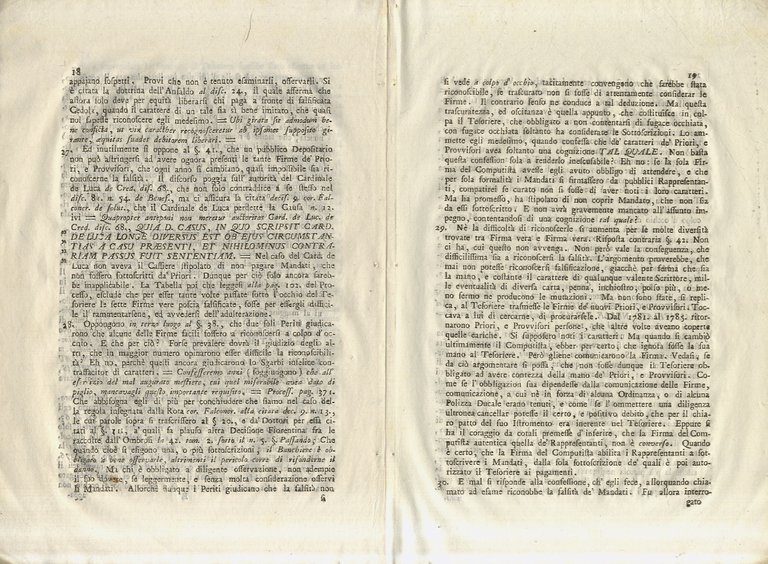 18
appajano sospetti. Provi che non è tenuto esaminarsi, osservarsi. Si
è citata la dottrina dell'Ansaldo al disc. 24., il quale afferma che
allora solo deve per equità liberarsi chi paga a fronte di falsificata
Cedola, quando il carattere di un tale sia sì bene imitato, che quasi
nol sapesse riconoscere egli medesimo. = Ubi girata sit admodum be-
ne conficta, ut vix caracter recognosceretur ab ipsomet supposito gi-
rante, æquitas suadet debitorem liberari. =
27. Ed inutilmente si oppone al §. 41., che un pubblico Depositario
non può astringersi ad avere ognora presenti le tante Firme de' Prio-
ri, e Provvisori, che ogni anno si cambiano, quasi impossibile sia ri-
conoscerne la falsità. Il discorso poggia sull'autorità del Cardinale
de Luca de Cred. disc. 68., che non solo contraddice a se stesso nel
disc. 81. n. 54. de Benef., ma ci assicura la citata decis. 9. cor. Fal-
coner. de solut., che il Cardinale de Luca perdette la Causa n. 12.
ivi = Quapropter anteponi non meretur auctoritas Card. de Luc. de
Cred. disc. 68., QUIA D. CASUS, IN QUO SCRIPSIT CARD.
DE LUCA LONGE DIVERSUS EST OB EJUS CIRCUMSTAN-
TIAS A CASU PRÆSENTI, ET NIHILOMINUS CONTRA-
RIAM PASSUS FUIT SENTENTIAM. = Nel caso del Card. de
Luca non aveva il Cassiere stipolato di non pagare Mandati, che
non fossero sottoscritti da' Priori. Dunque per ciò solo ancora sareb-
be inapplicabile. La Tabella poi che leggesi alla pag. 102. del Pro-
cesso, esclude che per esser tante volte passate sott'occhio del Te-
soriere le sette Firme vere poscia falsificate, fosse per essergli diffici-
le il rammentarsene, ed avvedersi dell'adulterazione.
28. Oppongono in terzo luogo al §. 38., che due soli Periti giudica-
rono che alcune delle Firme facili fossero a riconoscersi a colpo d'oc-
chio. E che per ciò? Forse prevaler dovrà il giudizio negli al-
tri, che in maggior numero opinarono esser difficile la riconoscibili-
tà? Eh no, perchè questi ancora giudicarono lo Sgarbi infelice con-
traffacitor di caratteri. = Confesseremo anzi (soggiungono) che all'
esercizio del mal augurato mestiere, cui quel miserabile avea dato di
piglio, mancavagli questo importante requisito. = Process. pag. 371.
Che abbisogna egli di più per conchiudere che siamo nel caso del-
la regola insegnata dalla Rota cor. Falconer. alla citata decis. 9. n. 13.,
le cui parole sopra si trascrissero al §. 20., e da' Dottori per essa ci-
tati al §. 21., a' quali fa plauso altra Decisione Fiorentina fra le
raccolte dall'Ombrosi la 42. tom. 2. sotto il n. 5. §. Passando; Che
quando cioè si esigono una, o più sottoscrizioni, il Banchiere è ob-
bligato a bene osservarle, altrimenti il pericolo corre di risondirne il
danno. Ma chi è obbligato a diligente osservazione, non adempie
il suo dovere, se leggermente, e senza molta considerazione osservi
li Mandati. Allorchè dunque i Periti giudicano che la falsità non
si
19
si vede a colpo d'occhio, tacitamente convengono che sarebbe stata
riconoscibile, se trascurato non si fosse di attentamente considerar le
Firme. Il contrario senso ne conduce a tal deduzione. Ma questa
trascuratezza, ed oscitanza è quella appunto, che costituisce in col-
pa il Tesoriere, che obbligato a non contentarsi di fugace occhiata,
con fugace occhiata soltanto ha considerate le Sottoscrizioni. Lo am-
mette egli medesimo, quando confessa che de' caratteri de' Priori, e
Provvisori avea soltanto una cognizione TAL QUALE. Non basta
questa confession sola a renderlo inescusabile? Eh no: se la sola Fir-
ma del Computista avesse egli avuto obbligo di attendere, e che
per sola formalità i Mandati si firmassero da pubblici Rappresentan-
ti, compatirei se curato non si fosse di aver noti i loro caratteri.
Ma ha promesso, ha stipolato di non coprir Mandato, che non sia
da essi sottoscritto. E non avrà gravemente mancato all'assunto im-
pegno, contentandosi di una cognizion tal quale?
29. Nè la difficoltà di riconoscerle si aumenta per le molte diversità
trovate tra Firma vera e Firma vera. Risposta contraria §. 42. Non
ci ha, cui quello non avvenga. Non però vale la conseguenza, che
difficilissima sia a riconoscersi la falsità. L'argomento proverebbe, che
mai non potesse riconoscersi falsificazione, giacchè per ferma che sia
la mano, e costante il carattere di qualunque valente Scrittore, mil-
le eventualità di diversa carta, penna, inchiostro, posso più, o me-
no fermo ne producono le mutazioni. Ma non sono state, si repli-
ca, al Tesoriere trasmesse le Firme de' nuovi Priori, e Provvisori. Toc-
cava a lui di cercarne, di procurarsele. Dal 1781. al 1785. ritor-
narono Priori, e Provvisori persone, che altre volte aveano coperte
quelle cariche. Si supposero noti i caratteri. Ma quando si cambiò
ultimamente il Computista, ebber per certo, che ignota fosse la sua
mano al Tesoriere. Però gliene comunicarono la Firma. Vedasi, se
da ciò argomentare si possa, che non fosse dunque il Tesoriere ob-
bligato ad avere contezza della mano de' Priori, e Provvisori. Co-
me se l'obbligazion sua dipendesse dalla comunicazione delle Firme,
comunicazione, a cui nè in forza di alcuna Ordinanza, o di alcuna
Polizza Ducale erano tenuti, e come se l'ommettere una diligenza
ultronea cancellar potesse il certo, e positivo debito, che per il chia-
ro patto del suo Istromento era inerente nel Tesoriere. Eppure si
fra il coraggio da cotali premesse d'inferire, che la Firma del Com-
putista autentica quella de' Rappresentanti, non e converso. Quando
è certo, che la Firma del Computista abilita i Rappresentanti a sot-
toscrivere i Mandati, dalla sola sottoscrizione de' quali è poi auto-
rizzato il Tesoriere ai pagamenti.
30. E mal si risponde alla confessione, ch'egli fece, allorquando chia-
mato ad esame riconobbe la falsità de' Mandati. Fu allora interro-
gato